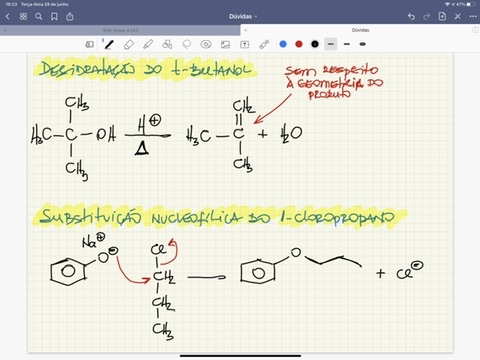 16:23 Terça-feira 29 de junho
Dúvidas
47%
Dúvidas
DESIDRATAÇÃO DO t-BUTANOL
SEM RESPEITO
À GEOMETRIA DO
PRODUTO
CH3
H3C - C - OH
CH3
H⊕
Δ
CH2
H3C - C
CH3
+ H2O
SUBSTITUIÇÃO NUCLEOFÍLICA DO 1-CLOROPROPANO
Na⊕
O⊖
Cl
CH2
CH2
CH3
O
+ Cl⊖